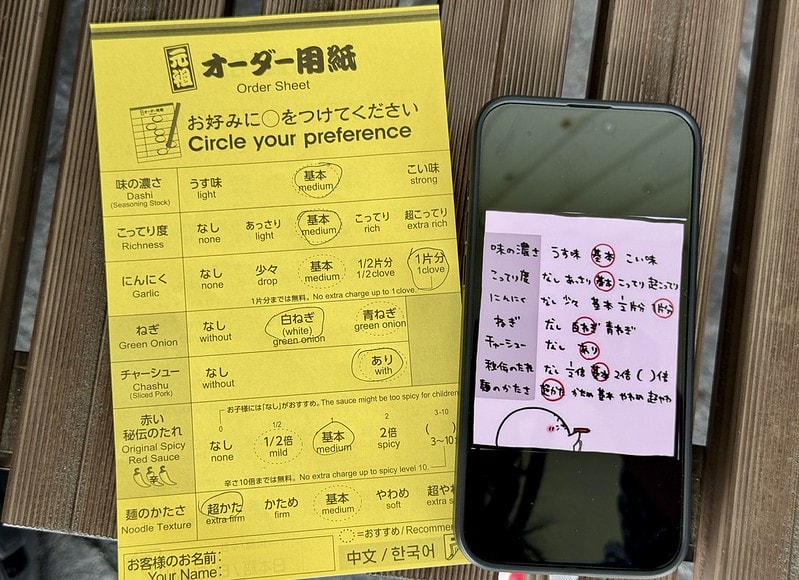 元祖 オーダー用紙
Order Sheet
お好みに○をつけてください
Circle your preference
味の濃さ うす味 基本 こい味
Dashi light medium strong
(Seasoning Stock)
こってり度 なし あっさり 基本 こってり 超こってり
Richness none light medium rich extra rich
にんにく なし 少々 基本 1/2片分 1片分
Garlic none drop medium 1/2clove 1clove
1片分までは無料。No extra charge up to 1clove.
ねぎ なし 白ねぎ 青ねぎ
Green Onion without (white) green onion
green onion
チャーシュー なし あり
Chashu without with
(Sliced Pork)
お子様には「なし」がおすすめ。The sauce might be too spicy for children
赤い 0 1/2 1 2 3-10
秘伝のたれ なし 1/2倍 基本 2倍 ( )
Original Spicy none mild medium spicy 3〜10
Red Sauce
辛
辛さ10倍までは無料。No extra charge up to spicy level 10.
麺のかたさ 超かた かため 基本 やわめ 超や
Noodle Texture extra firm firm medium soft extra s
=おすすめ/Recomme
お客様のお名前:
Your Name:
中文/한국어
味の濃さ うす味 基本 こい味
こってり度 なし あっさり 基本 こってり 超こってり
にんにく なし 少々 基本 1/2片分 1片分
ねぎ なし 白ねぎ 青ねぎ
チャーシュー なし あり
秘伝のたれ なし 1/2倍 基本 2倍 ( )倍
麺のかたさ 超かた かため 基本 やわめ 超やわ